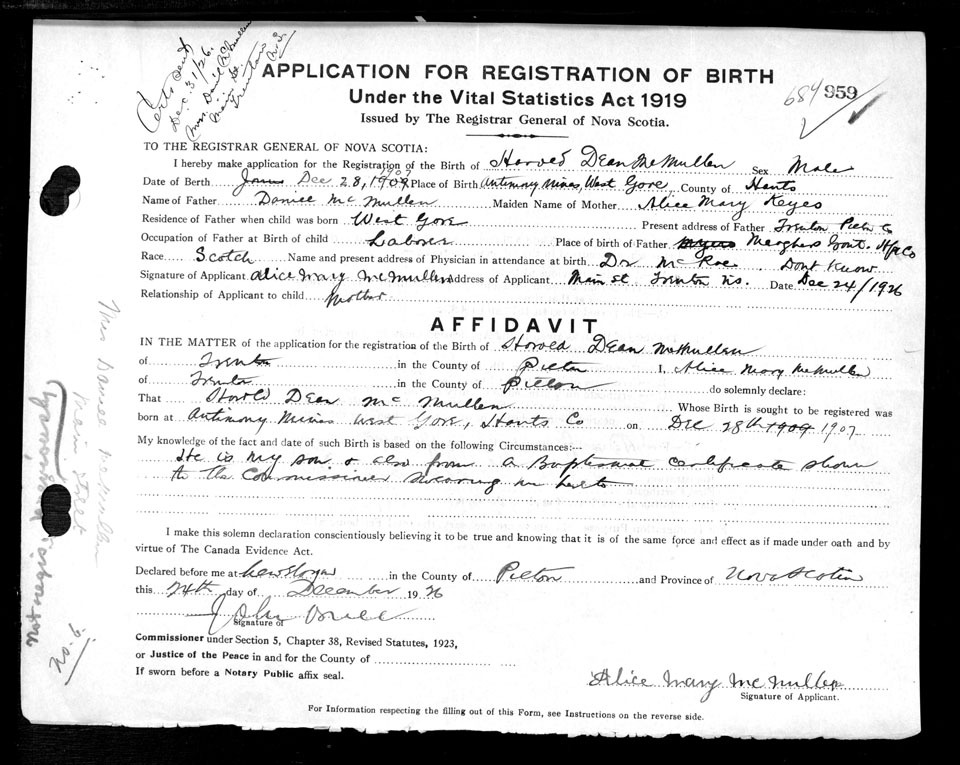 Certs sent
Dec. 31/26.
Mrs. Daniel McMullen
Main St.
Trenton
N.S.
APPLICATION FOR REGISTRATION OF BIRTH
Under the Vital Statistics Act 1919
Issued by The Registrar General of Nova Scotia.
684 959
TO THE REGISTRAR GENERAL OF NOVA SCOTIA:
I hereby make application for the Registration of the Birth of Harold Dean McMullen Sex Male
Date of Berth Dec 28, 1909 1907 Place of Birth Antimony Mines, West Gore, County of Hants
Name of Father Daniel McMullen Maiden Name of Mother Alice Mary Keyes
Residence of Father when child was born West Gore Present address of Father Trenton Pictou Co
Occupation of Father at Birth of child Laborer Place of birth of Father Meaghers Grant. Hfx Co
Race Scotch Name and present address of Physician in attendance at birth Dr McRae. Dont Know
Signature of Applicant Alice Mary McMullen Address of Applicant Main St Trenton N.S. Date Dec 24/1926
Relationship of Applicant to child Mother
AFFIDAVIT
IN THE MATTER of the application for the registration of the Birth of Harold Dean McMullen
of Trenton in the County of Pictou I, Alice Mary McMullen
of Trenton in the County of Pictou do solemnly declare:
That Harold Dean McMullen Whose Birth is sought to be registered was
born at Antimony Mines West Gore, Hants Co on Dec 28th 1909 1907
My knowledge of the fact and date of such Birth is based on the following Circumstances:—
He is my son & also from a Baptismal certificate shown
to the Commissioner swearing me hereto
I make this solemn declaration conscientiously believing it to be true and knowing that it is of the same force and effect as if made under oath and by
virtue of The Canada Evidence Act.
Declared before me at New Glasgow in the County of Pictou and Province of Nova Scotia
this 24th day of December 1926
John
Signature of
Commissioner under Section 5, Chapter 38, Revised Statutes, 1923,
or Justice of the Peace in and for the County of
If sworn before a Notary Public affix seal.
Alice Mary McMullen
Signature of Applicant.
For Information respecting the filling out of this Form, see Instructions on the reverse side.
Mrs Daniel McMullen
Main Street
N.S.
Not registered